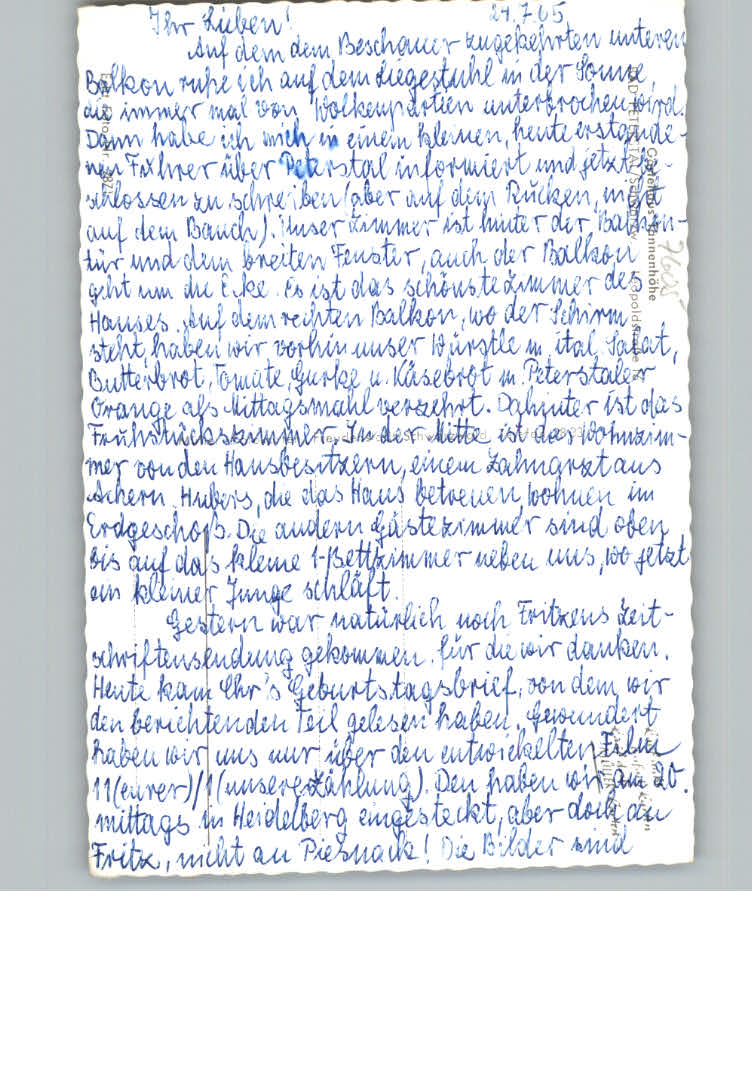 Ihr Lieben! 24.7.65
Auf dem dem Beschauer zugekehrten unteren
Balkon ruhe ich auf dem Liegestuhl in der Sonne,
die immer mal von Wolkenpartien unterbrochen wird.
Dann habe ich mich in einem kleinen, heute erstande-
nen Führer über Peterstal informiert und jetzt be-
schlossen zu schreiben (aber auf dem Rücken, nicht
auf dem Bauch). Unser Zimmer ist hinter der Balkon-
tür und dem breiten Fenster, auch der Balkon
geht um die Ecke. Es ist das schönste Zimmer des
Hauses. Auf dem rechten Balkon, wo der Schirm
steht, haben wir vorhin unser Würstle m. ital. Salat,
Butterbrot, Tomate, Gurke u. Käsebrot m. Peterstaler
Orange als Mittagsmahl verzehrt. Dahinter ist das
Frühstückszimmer. In der Mitte ist das Wohnzim-
mer von den Hausbesitzern, einem Zahnarzt aus
Achern. Hubers, die das Haus betreuen, wohnen im
Erdgeschoß. Die andern Gästezimmer sind oben
bis auf das kleine 1-Bettzimmer neben uns, wo jetzt
ein kleiner Junge schläft.
Gestern war natürlich noch Fritzens Zeit-
schriftensendung gekommen, für die wir danken.
Heute kam Chr's Geburtstagsbrief, von dem wir
den berichtenden Teil gelesen haben. Gewundert
haben wir uns nur über den entwickelten Film
11 (eurer)/1 (unserer Zählung). Den haben wir am 20.
mittags in Heidelberg eingesteckt, aber doch an
Fritz, nicht an Piesnack! Die Bilder sind
Gästehaus Tannenhöhe
BAD PETERSTAL/Schwarzw.
7605